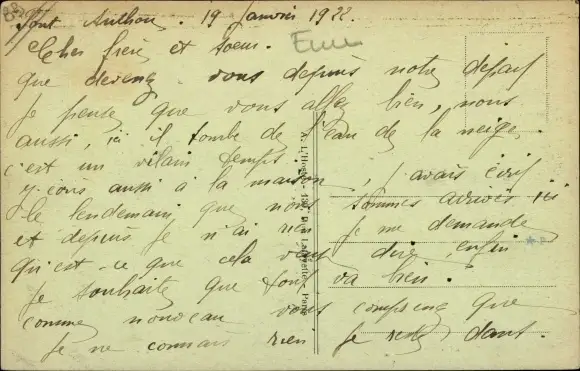 Pont Authou. 19 Janvier 1922.
Cher frère et soeur.
que devenez-vous depuis notre départ
Je pense que vous allez bien, nous
aussi, ici il tombe de l'eau de la neige,
c'est un vilain temps.
aussi à la maison, j'avais écrit
le lendemain que nous sommes arrivés ici
et depuis je n'ai rien je me demande
qu'est-ce que cela veut dire, enfin
Je souhaite que tout va bien.
comme nouveau vous comprenez que
Je ne connais rien je reste dans.
A. L'Hoste - Rue Lafayette, Paris